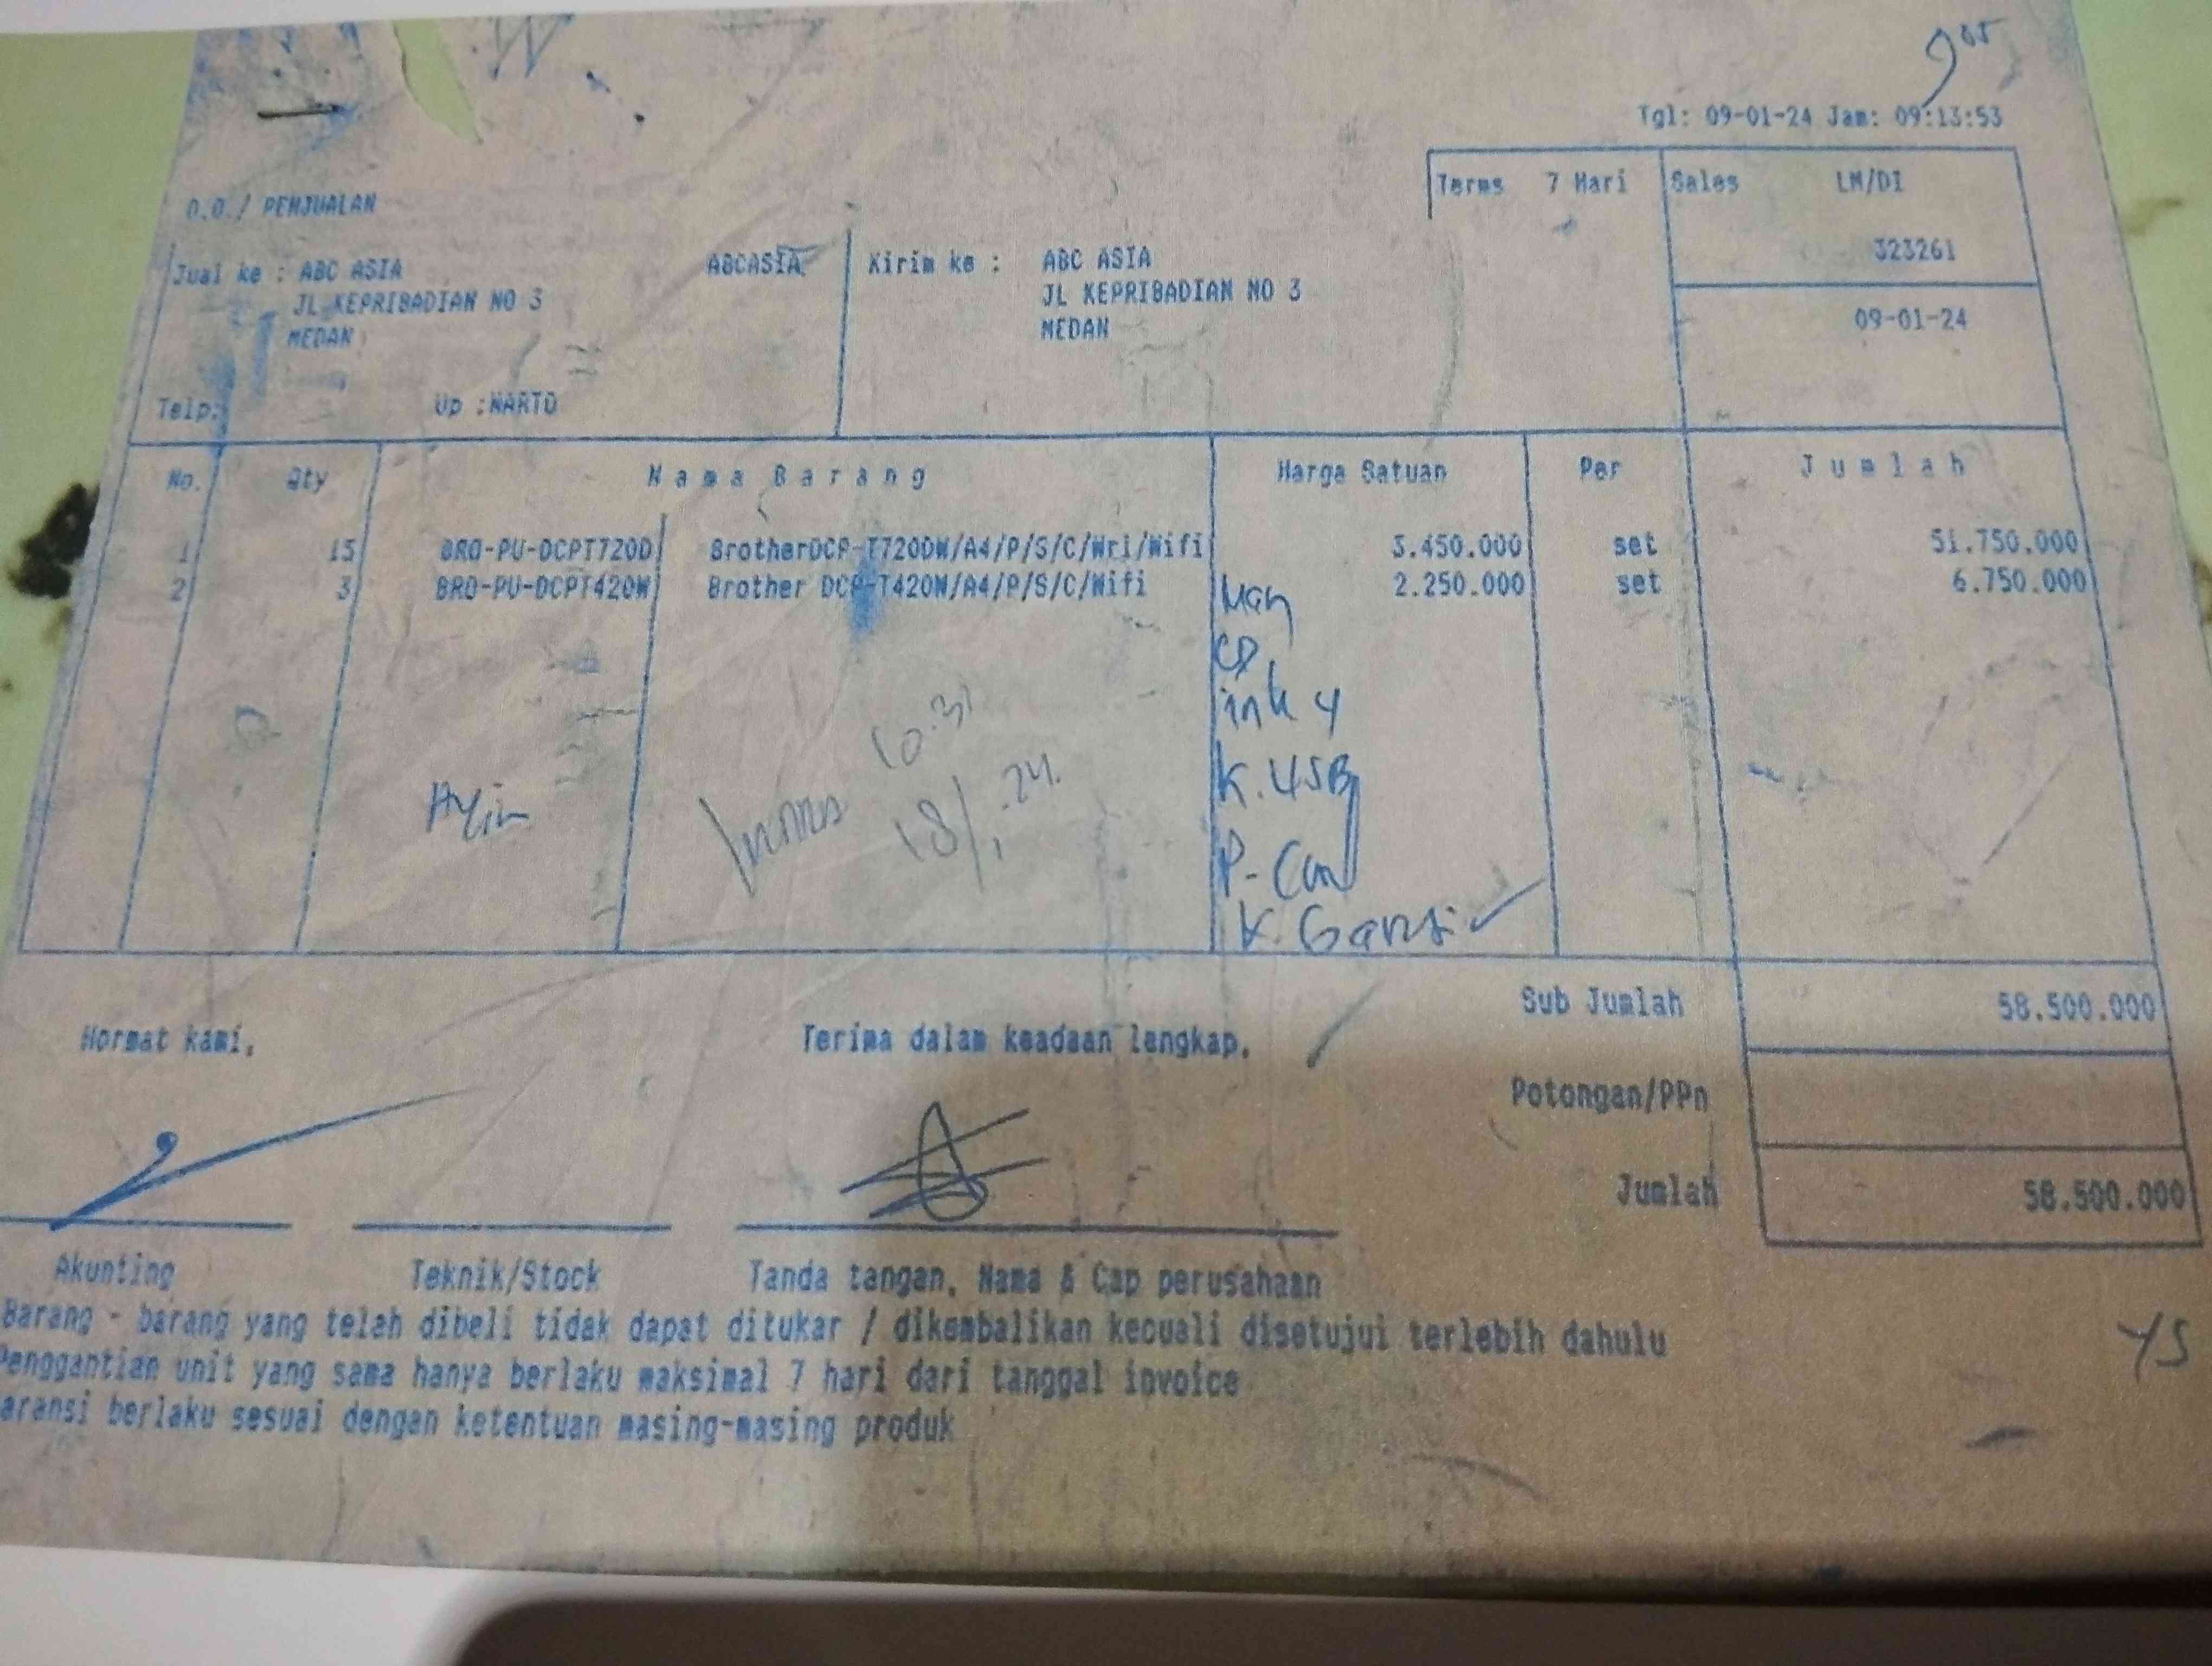 9⁰⁵
Tgl: 09-01-24 Jam: 09:13:53
Terms 7 Hari Sales LM/DI
D.O./ PENJUALAN
323261
Jual ke : ABC ASIA ABCASIA Kirim ke : ABC ASIA
JL KEPRIBADIAN NO 3 JL KEPRIBADIAN NO 3
MEDAN MEDAN
09-01-24
Telp: Up :WARTO
No. Qty Nama Barang Harga Satuan Per Jumlah
1 15 BRO-PU-DCPT720D BrotherDCP-T720DW/A4/P/S/C/Wrl/Wifi 3.450.000 set 51.750.000
2 3 BRO-PU-DCPT420W Brother DCP-T420W/A4/P/S/C/Wifi 2.250.000 set 6.750.000
CD
ink 4
10.31
K. USB
18/1.24.
K. Garansi
Sub Jumlah 58.500.000
Hormat kami, Terima dalam keadaan lengkap,
Potongan/PPn
Jumlah 58.500.000
Akunting Teknik/Stock Tanda tangan, Nama & Cap perusahaan
Barang - barang yang telah dibeli tidak dapat ditukar / dikembalikan kecuali disetujui terlebih dahulu
YS
Penggantian unit yang sama hanya berlaku maksimal 7 hari dari tanggal invoice
aransi berlaku sesuai dengan ketentuan masing-masing produk